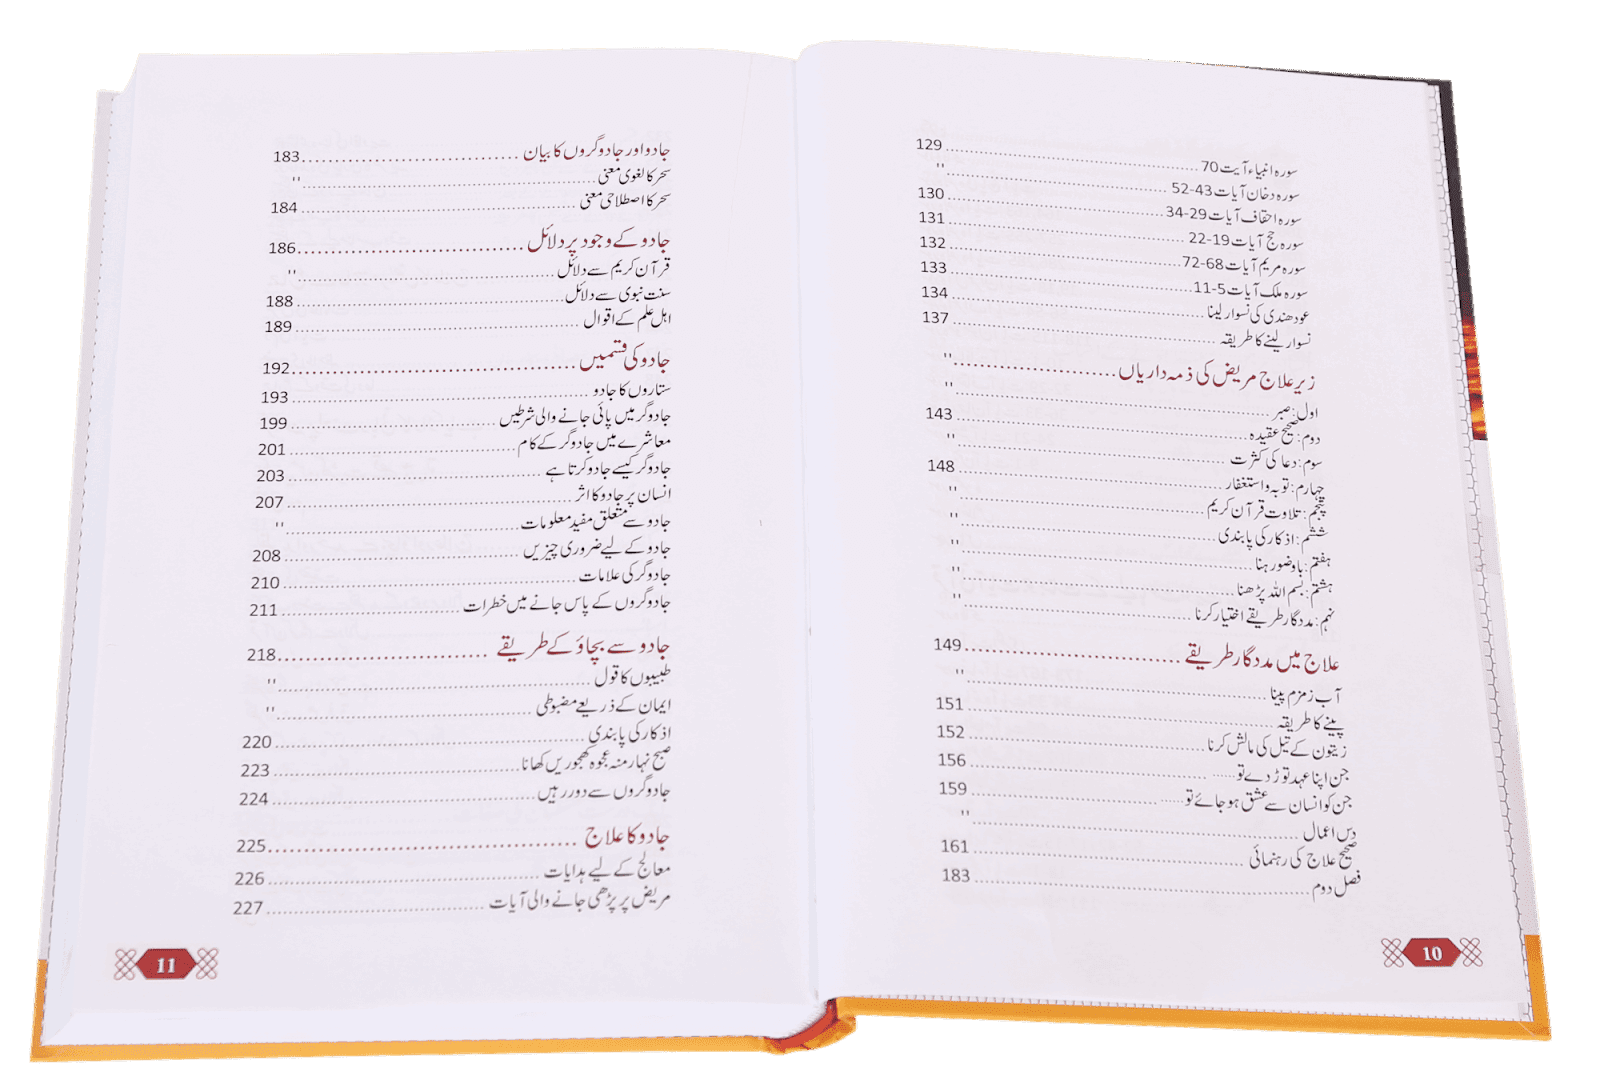 سورہ انبیاء آیت 70 ........ 129
سورہ دخان آیات 43-52 ........ "
سورہ احقاف آیات 29-34 ........ 130
سورہ حج آیات 19-22 ........ 131
سورہ مریم آیات 68-72 ........ 132
سورہ ملک آیات 5-11 ........ 133
عود ھندی کی نسوار لینا ........ 134
نسوار لینے کا طریقہ ........ 137
زیرِ علاج مریض کی ذمہ داریاں ........ "
اول: صبر ........ "
دوم: صحیح عقیدہ ........ 143
سوم: دعا کی کثرت ........ "
چہارم: توبہ واستغفار ........ 148
پنجم: تلاوت قرآن کریم ........ "
ششم: اذکار کی پابندی ........ "
ہفتم: باوضو رہنا ........ "
ہشتم: بسم اللہ پڑھنا ........ "
نہم: مددگار طریقے اختیار کرنا ........ "
علاج میں مددگار طریقے ........ 149
آب زمزم پینا ........ "
پینے کا طریقہ ........ 151
زیتون کے تیل کی مالش کرنا ........ 152
جن اپنا عہد توڑ دے تو ........ 156
جن کو انسان سے عشق ہو جائے تو ........ 159
دس اعمال ........ "
صحیح علاج کی رہنمائی ........ 161
فصل دوم ........ 183
10
جادو اور جادوگروں کا بیان ........ 183
سحر کا لغوی معنی ........ "
سحر کا اصطلاحی معنی ........ 184
جادو کے وجود پر دلائل ........ 186
قرآن کریم سے دلائل ........ "
سنت نبوی سے دلائل ........ 188
اہل علم کے اقوال ........ 189
جادو کی قسمیں ........ 192
ستاروں کا جادو ........ 193
جادوگر میں پائی جانے والی شرطیں ........ 199
معاشرے میں جادوگر کے کام ........ 201
جادوگر کیسے جادو کرتا ہے ........ 203
انسان پر جادو کا اثر ........ 207
جادو سے متعلق مفید معلومات ........ "
جادو کے لیے ضروری چیزیں ........ 208
جادوگر کی علامات ........ 210
جادوگروں کے پاس جانے میں خطرات ........ 211
جادو سے بچاؤ کے طریقے ........ 218
طبیبوں کا قول ........ "
ایمان کے ذریعے مضبوطی ........ "
اذکار کی پابندی ........ 220
صبح نہار منہ عجوہ کھجوریں کھانا ........ 223
جادوگروں سے دور رہیں ........ 224
جادو کا علاج ........ 225
معالج کے لیے ہدایات ........ 226
مریض پر پڑھی جانے والی آیات ........ 227
11